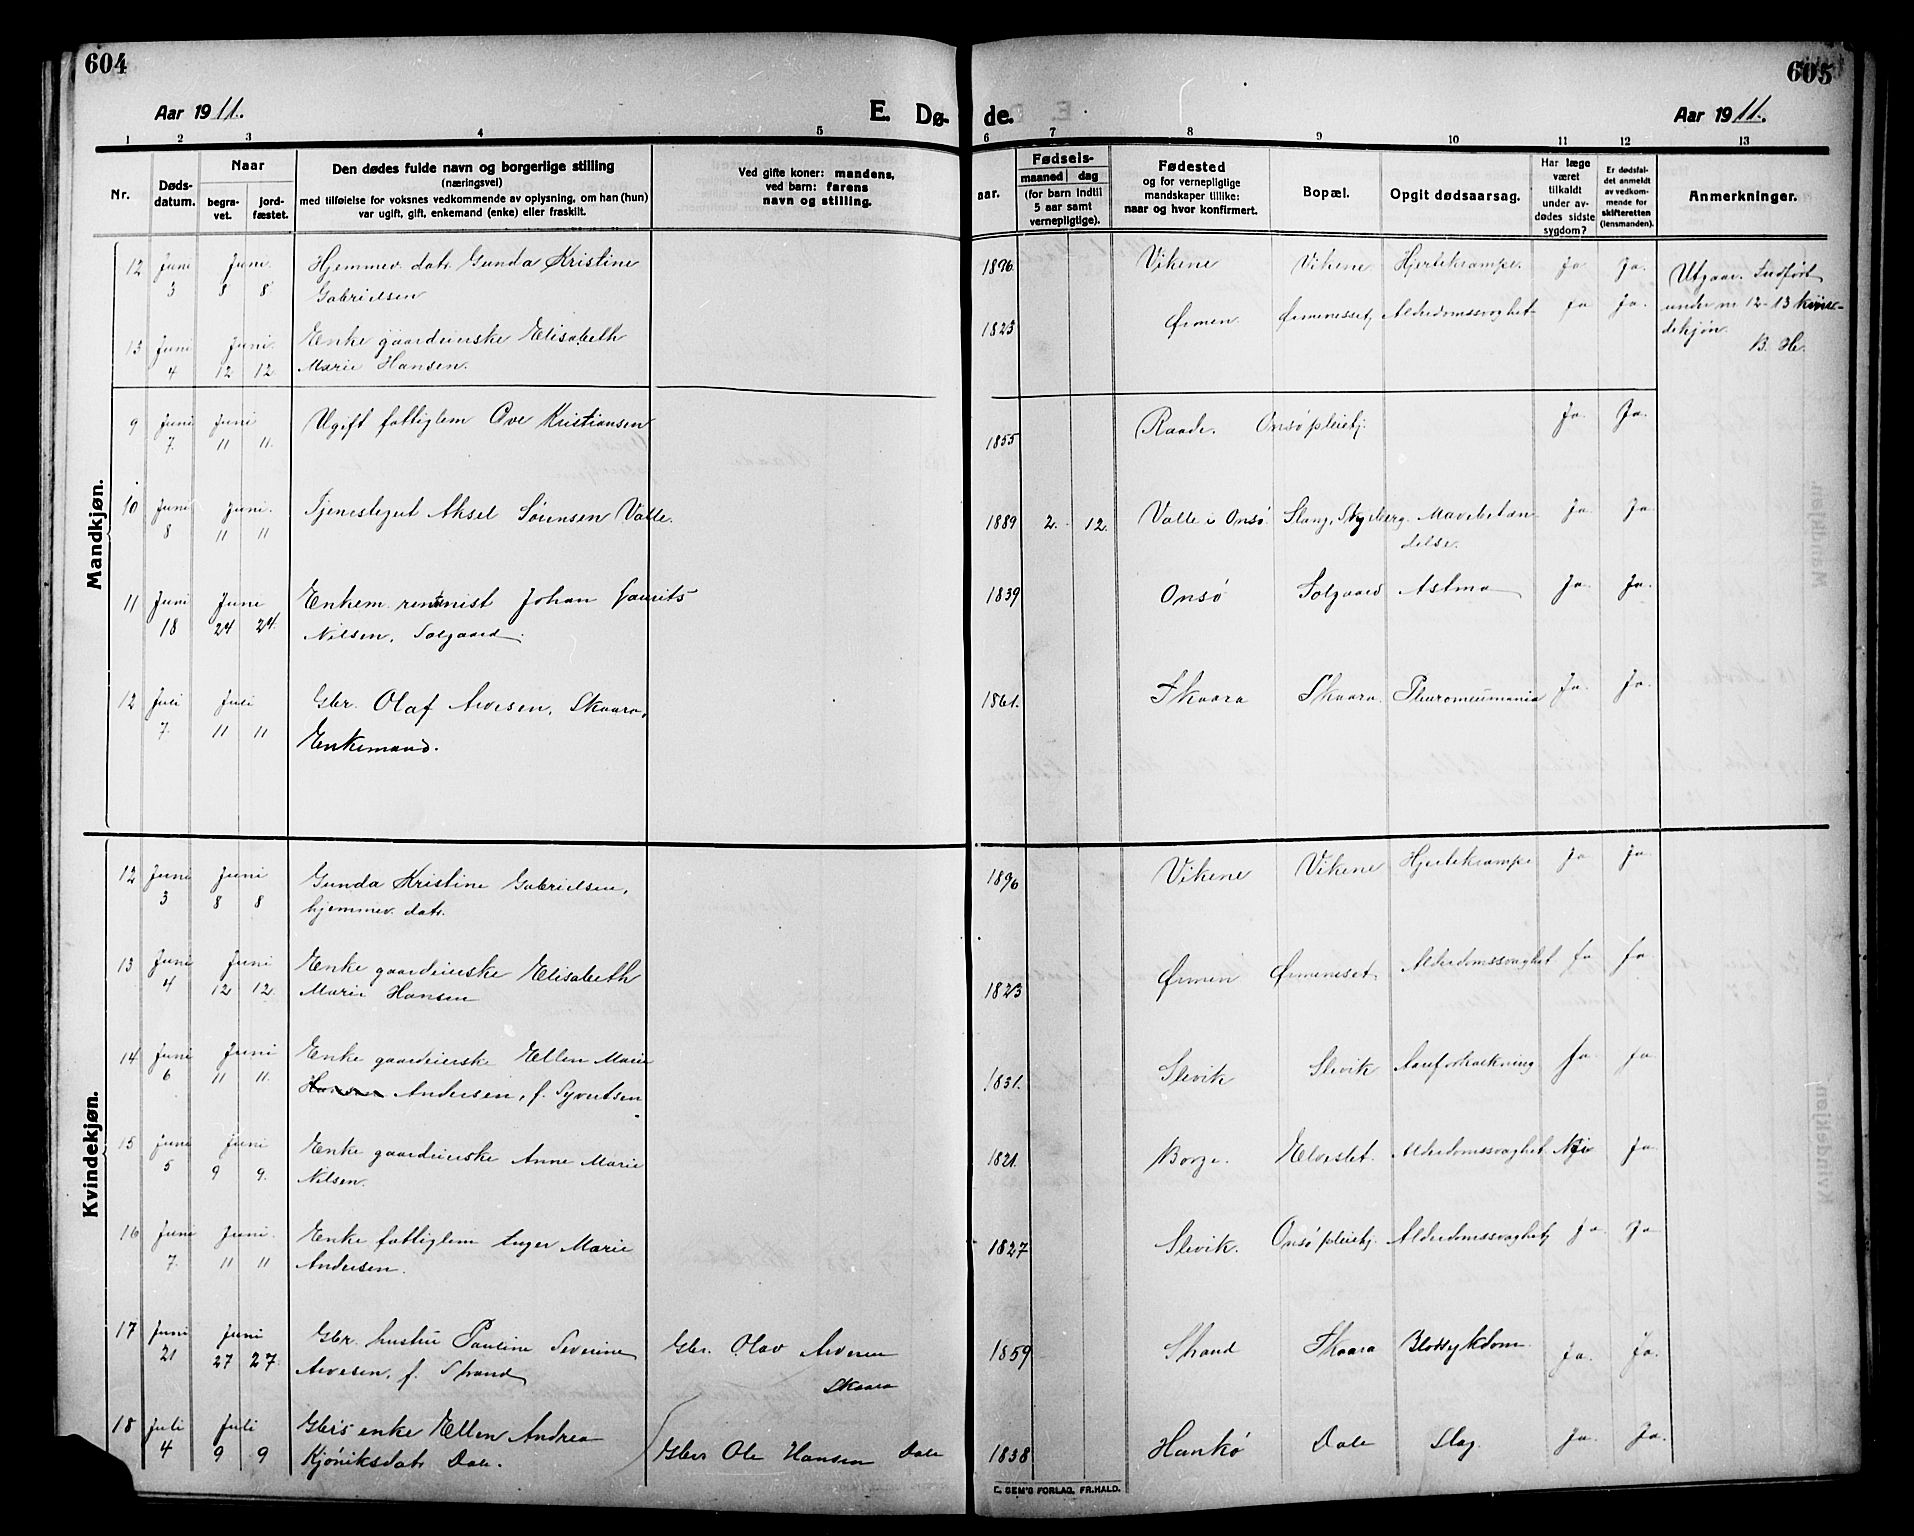 604
605
Aar 1911.
E. Dø-
de.
Aar 1911.
1 2 3 4 5 6 7 8 9 10 11 12 13
Nr.
Døds-
datum.
Naar
begra-
vet.
jord-
fæstet.
Den dødes fulde navn og borgerlige stilling
(næringsvei)
med tilføielse for voksnes vedkommende av oplysning, om han (hun)
var ugift, gift, enkemand (enke) eller fraskilt.
Ved gifte koner: mandens,
ved barn: farens
navn og stilling.
aar.
Fødsels-
maaned dag
(for barn indtil
5 aar samt
vernepligtige).
Fødested
og for vernepligtige
mandskaper tillike:
naar og hvor konfirmert.
Bopæl.
Opgit dødsaarsag.
Har læge
været
tilkaldt
under av-
dødes sidste
sygdom?
Er dødsfal-
det anmeldt
av vedkom-
mende for
skifteretten
(lensmanden).
Anmerkninger.
12 Juni Juni Hjemmev. datr. Gunda Kristine 1896 Vikene Vikene Hjertekrampe. Ja Ja.
3 8 8 Gabrielsen
Utgaar. Indført
under nr 12-13 kvin-
dekjøn.
B. He.
13 Juni Juni. Enke gaardeierske Elisabeth 1823 Ørmen. Ørmeneset, Alderdomssvaghet Ja Ja.
4 12 12. Marie Hansen.
Mandkjøn.
9 Juni Juni Ugift fattiglem Ove Kristiansen 1855 Raade. Onsø pleiehj. Ja. Ja.
7. 11 11.
10 Juni Juni. Tjenestegut Aksel Sørensen Valle. 1889 2. 12. Valle i Onsø. Slang, Skjeberg. Mavebetæn Ja. Ja.
8 11 11 delse.
11 Juni June Enkem. rentenist Johan Laurits 1839 Onsø Solgaard Astma Ja. Ja.
18 24 24. Nilsen, Solgaard.
12 Juli Juli Gbr. Olaf Arvesen, Skaara, 1861. Skaara Skaara. Pleuromeumania Ja. Ja.
7. 11 11 Enkemand.
Kvindekjøn.
12 Juni Juni Gunda Kristine Gabrielsen, 1896 Vikene Vikene Hjertekrampe Ja Ja.
3 8 8 hjemmev. datr.
13 Juni Juni Enke gaardeierske Elisabeth 1823 Ørmen Ørmeneset, Alderdomssvaghet Ja Ja.
4 12 12. Marie Hansen
14 Juni Juni Enke gaardeierske Ellen Marie 1831. Slevik Slevik Aareforkalkning Ja. Ja
6 11 11. Hansen Andersen, f. Syvertsen
15 Juni Juni Enke gaardeierske Anne Marie 1821. Borge. Elveslet. Alderdomssvaghet. Nei Ja.
5 9 9. Nilsen.
16 Juni Juni. Enke fattiglem Inger Marie 1827 Slevik. Onsø pleiehj. Alderdomssvaghet, Ja. Ja
7. 11 11 Andersen.
17 Juni Juni Gbr. hustru Pauline Severine Gbr. Olav Arvesen 1859 Strand Skaara Blodsykdom Ja. Ja.
21 27 27. Arvesen, f. Strand Skaara
18 Juli Juli Gbr's enke Ellen Andrea
4 9 9 Kjøniksdatr Dale. Gbr. Ole Hansen Dale 1838 Hankø Dale Slag. Ja. Ja.
C. SEM'S FORLAG, FR.HALD.
Mandkjøn
Kvindekjøn